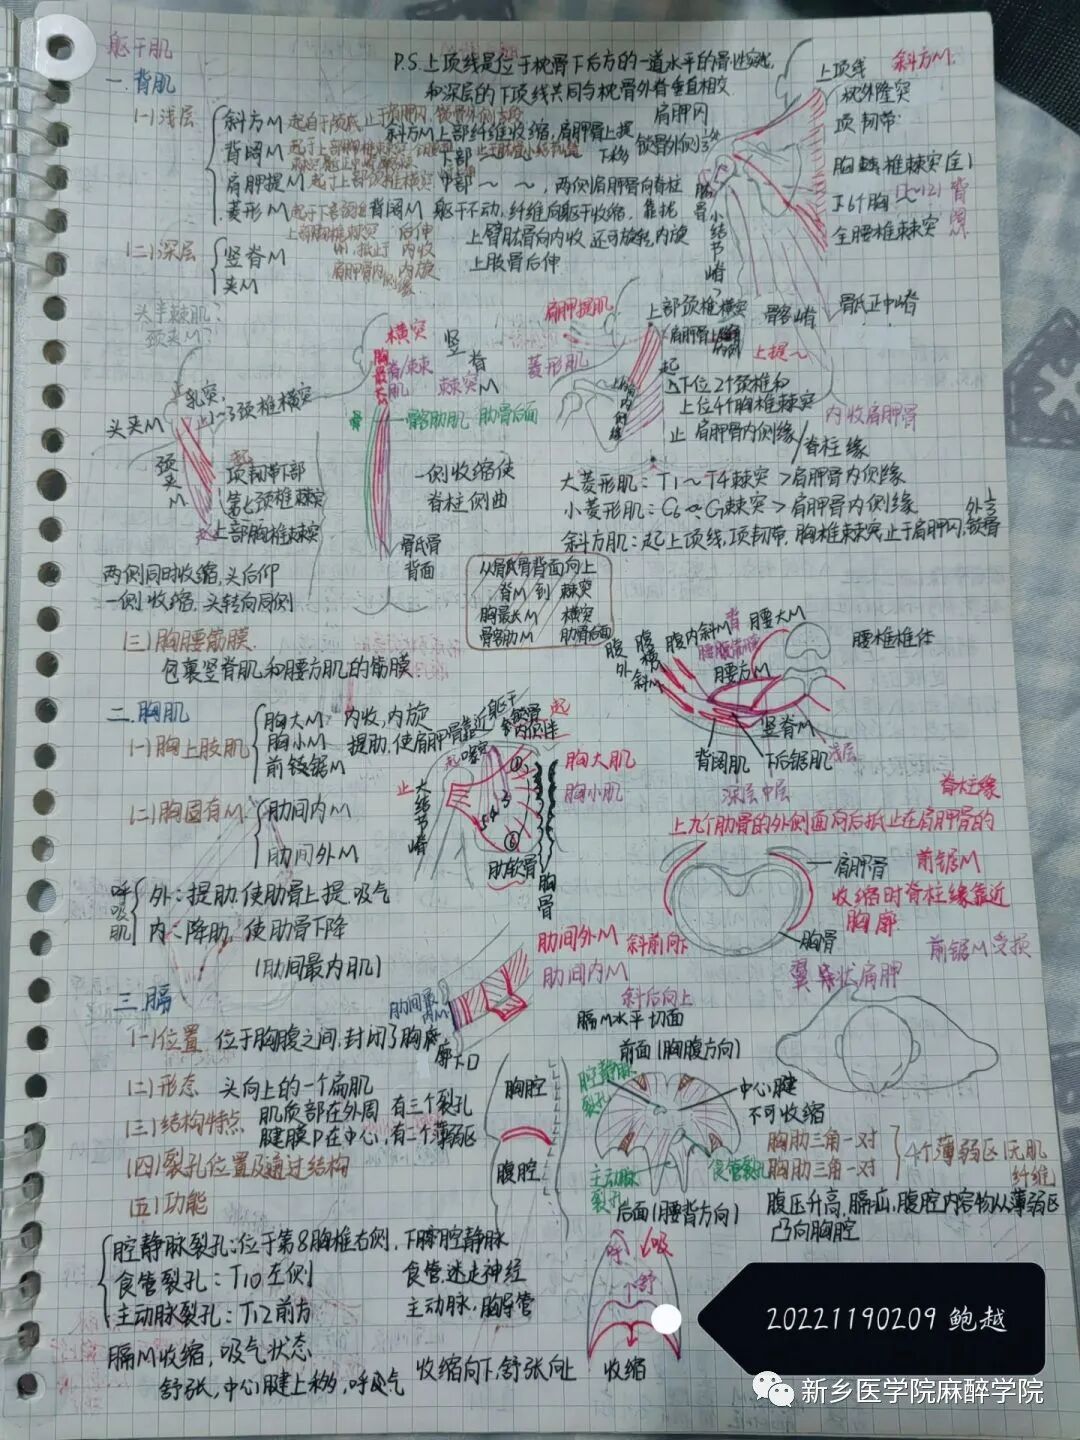 躯干肌
P.S.上项线是位于枕骨下后方的一道水平的骨性突起,
和深层的下项线共同与枕骨外脊垂直相交
一.背肌
(一)浅层
斜方M
斜方M上部纤维收缩,肩胛骨上提
背阔M
下部 下移
肩胛提M 起于上部颈椎横突
中部～～,两侧肩胛骨向脊柱
靠拢
菱形M
背阔M 躯干不动,纤维向躯干收缩,
后伸
内收
内旋
上臂肱骨向内收,还可旋转,内旋
上肢骨后伸
(二)深层
竖脊M
夹M
头半棘肌?
颈夹M?
上项线 斜方M.
枕外隆突
项韧带
肩胛冈
锁骨外侧1/3
胸椎棘突(全)
下6个胸
全腰椎棘突
背阔
肱骨小结节嵴
髂嵴
骶正中嵴
乳突
1~3颈椎横突
头夹M
颈夹M
起
项韧带下部
第七颈椎棘突
上部胸椎棘突
两侧同时收缩,头后仰
一侧收缩,头转向同侧
横突
胸最长
脊/棘肌
竖脊M
棘突
髂肋肌 肋骨后面
一侧收缩使
脊柱侧曲
骶骨
背面
肩胛提肌
菱形肌
上部颈椎横突
上提~
起
下位2个颈椎和
上位4个胸椎棘突
止 肩胛骨内侧缘/脊柱缘
内收肩胛骨
大菱形肌:T1~T4棘突>肩胛骨内侧缘
小菱形肌:C6~C7棘突>肩胛骨内侧缘
斜方肌:起上项线,项韧带,胸椎棘突,止于肩胛冈,锁骨外1/3
从骶骨背面向上
脊M到 棘突
胸最长M 横突
髂肋M 肋骨后面
(三)胸腰筋膜.
包裹竖脊肌和腰方肌的筋膜.
腹外斜M
腹横M
腹内斜M
腰大M
腰方M
腰椎椎体
竖脊M
背阔肌
下后锯肌
浅层
深层 中层
二.胸肌
(一)胸上肢肌
胸大M 内收,内旋
胸小M 提肋,使肩胛骨靠近躯干
前锯M
(二)胸固有M
肋间内M
肋间外M
呼吸肌
外:提肋,使肋骨上提,吸气
内:降肋,使肋骨下降
(肋间最内肌)
止
大结节嵴
喙突
锁骨内侧半
起
胸大肌
胸小肌
肋软骨
胸骨
脊柱缘
上九个肋骨的外侧面向后抵止在肩胛骨的
肩胛骨 前锯M
收缩时脊柱缘靠近
胸廓
胸骨
前锯M受损
翼状肩胛
肋间外M 斜前向下
肋间内M
斜后向上
肋间最内M
三.膈
(一)位置 位于胸腹之间,封闭了胸廓下口
(二)形态 头向上的一个扁肌
(三)结构特点
肌质部在外周 有三个裂孔
腱膜P在中心,有二个薄弱区
(四)裂孔位置及通过结构
(五)功能
胸腔
腹腔
膈M水平切面
前面(胸腹方向)
腔静脉裂孔
中心腱
不可收缩
主动脉裂孔
食管裂孔
后面(腰背方向)
胸肋三角一对
胸肋三角一对
4个薄弱区(无肌纤维)
腹压升高,膈疝,腹腔内容物从薄弱区
凸向胸腔
腔静脉裂孔:位于第8胸椎右侧,下腔静脉
食管裂孔:T10左侧 食管,迷走神经
主动脉裂孔:T12前方 主动脉,胸导管
膈M收缩,吸气状态
舒张,中心腱上移,呼气
收缩向下,舒张向上
呼
吸
舒
收缩
20221190209 鲍越
新乡医学院麻醉学院